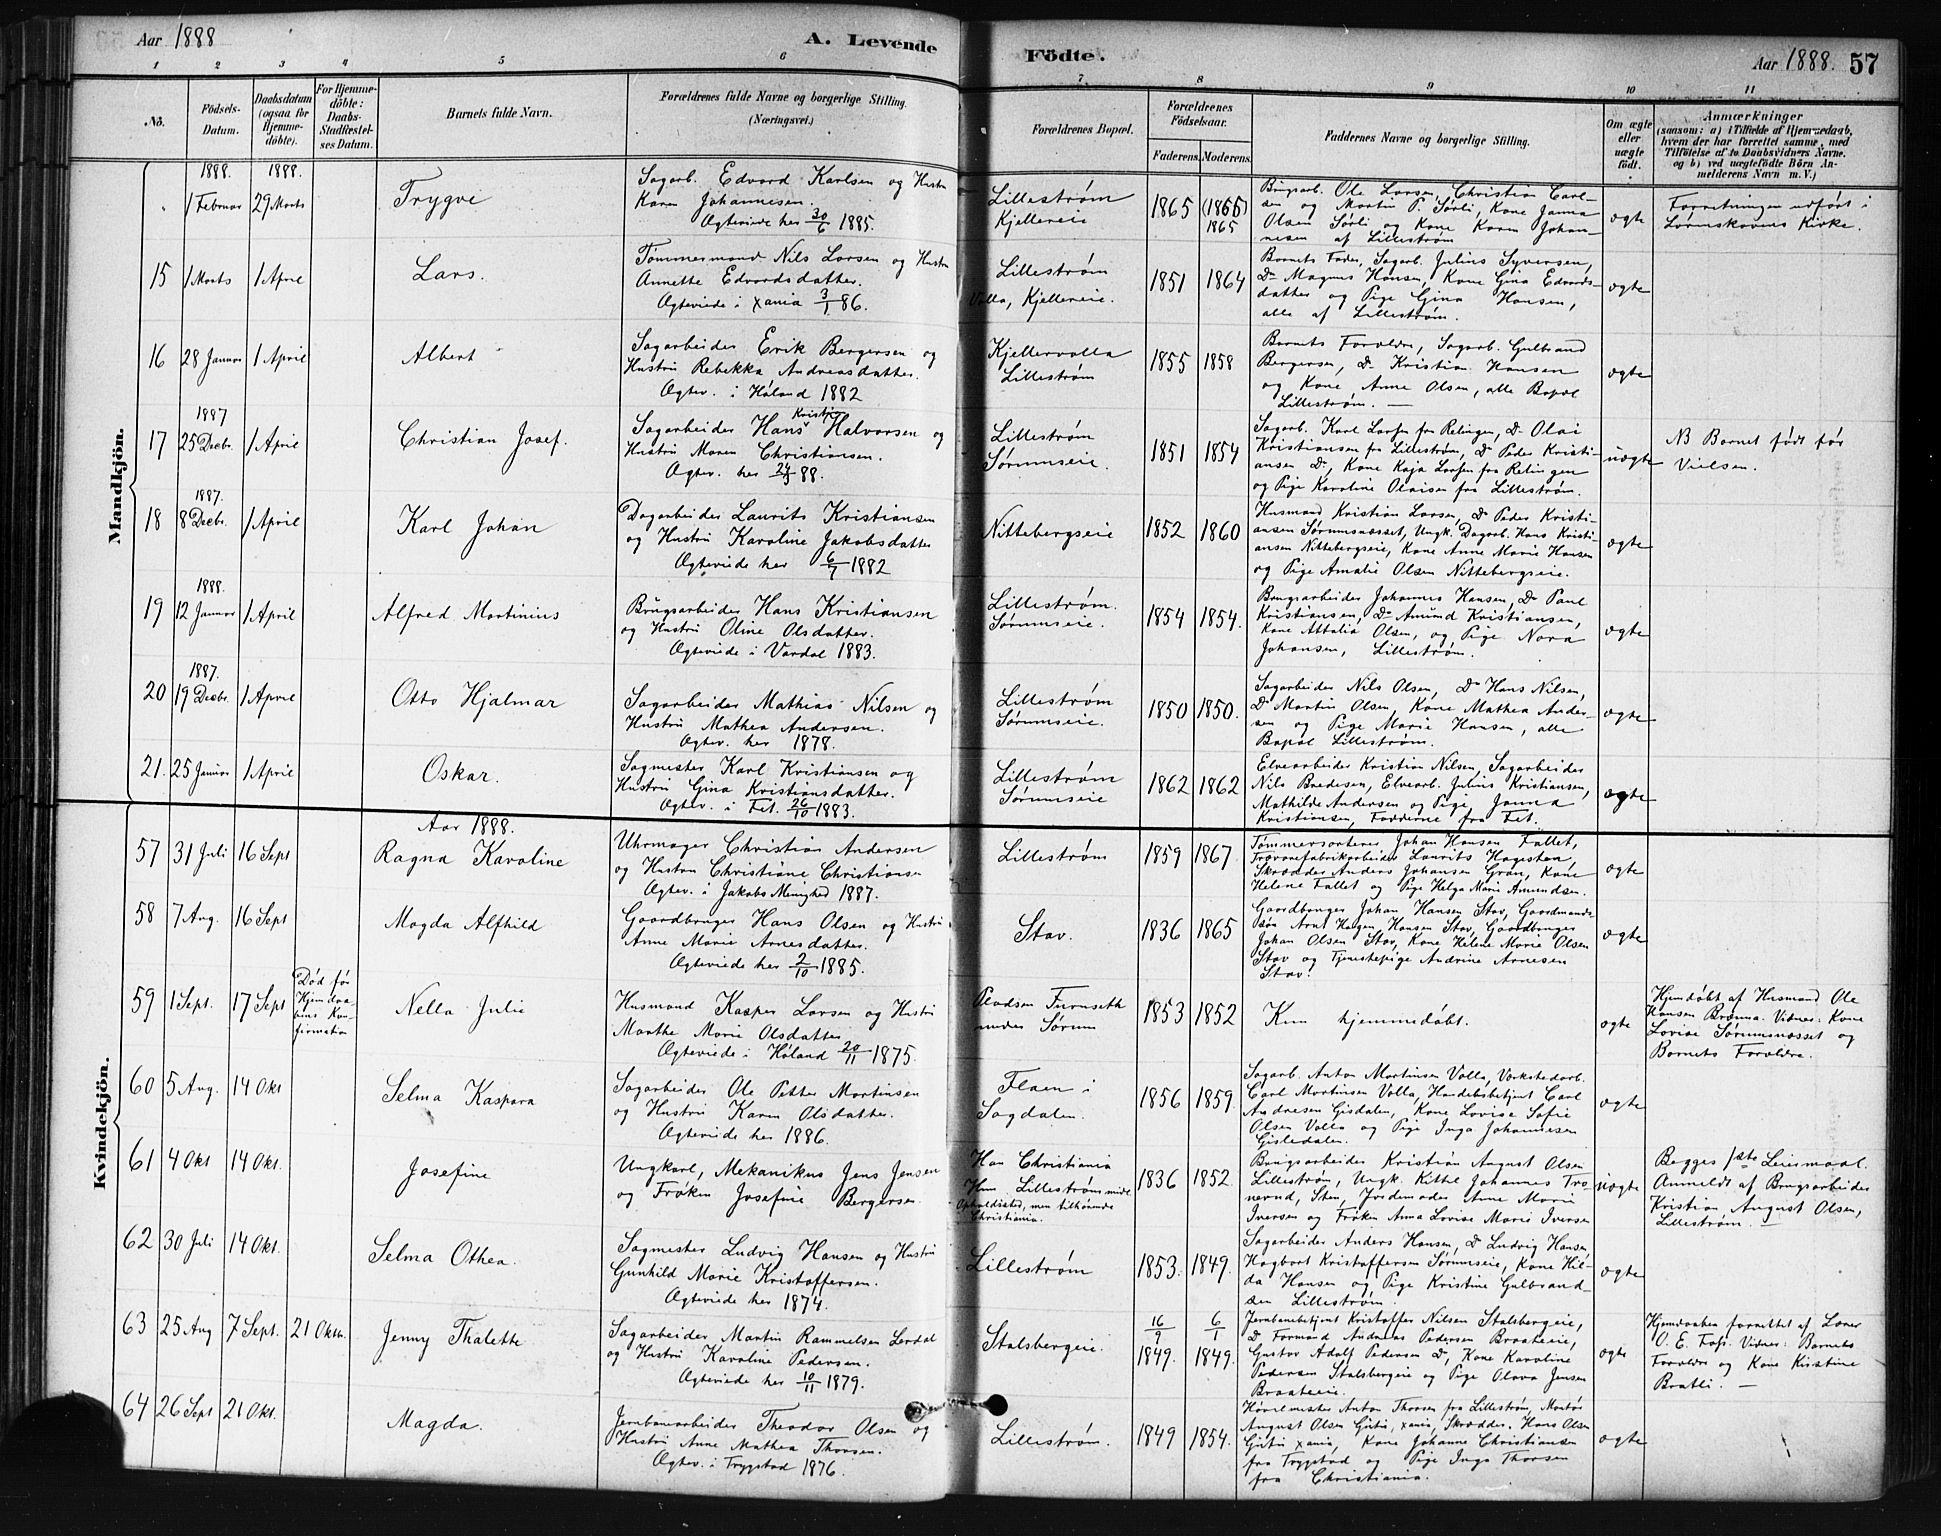 Aar 1888
A. Levende
Födte.
Aar 1888. 57
1 2 3 4 5 6 7 8 9 10 11
No.
Födsels-Datum.
Daabsdatum (ogsaa for Hjemme-döbte).
For Hjemme-döbte: Daabs-Stadfæstel-ses Datum.
Barnets fulde Navn.
Forældrenes fulde Navne og borgerlige Stilling. (Næringsvei.)
Forældrenes Bopæl.
Forældrenes Födselsaar.
Faderens. Moderens.
Faddernes Navne og borgerlige Stilling.
Om ægte eller uægte födt.
Anmærkninger
(saasom: a) i Tilfælde af Hjemmedaab, hvem der har forrettet samme, med Tilföielse af to Daabsvidners Navne, og b) ved uægtefödte Börn An-melderens Navn m. V.)
Mandkjön.
1888. 1888.
1 Februar 29 Marts
Trygve
Sagarb. Edvard Karlsen og Hustru
Karen Johannesen.
Ægteviede her 30/6 1885.
Lillestrøm
Kjellereie
1865 (1865) 1865
Brugsarb. Ole Larsen, Christian Carl-
sen og Martin P. Sørli, Kone Janna
Olsen Sørli og Kone Karen Johan-
nesen af Lillestrøm
ægte
Forretningen udført i
Lørenskovens Kirke.
15 1 Marts 1 April
Lars.
Tømmermand Nils Larsen og Hustru
Annette Edvardsdatter.
Ægteviede i Xania 3/1 86.
Lillestrøm
Volla, Kjellereie.
1851 1864
Barnets Fader, Sagarb. Julius Syversen,
Do Magnus Hansen, Kone Gina Edvards-
datter og Pige Gina Hansen,
alle af Lillestrøm.
ægte
16 28 Januar 1 April
Albert
Sagarbeider Erik Bergersen og
Hustru Rebekka Andreasdatter.
Ægtev. i Høland 1882
Kjellervolla
Lillestrøm
1855 1858
Barnets Forældre, Sagarb. Gulbrand
Bergersen, Do Kristian Hansen
og Kone Anne Olsen, alle Bopæl
Lillestrøm. —
ægte
1887
17 25 Decbr. 1 April
Christian Josef.
Sagarbeider Hans Kristian Halvorsen og
Hustru Maren Christiansen.
Ægtev. her 24/3 88.
Lillestrøm
Sørumseie.
1851 1854
Sagarb. Karl Larsen fra Rælingen, Do Olai
Kristiansen fra Lillestrøm, Do Peder Kristi-
ansen Do, Kone Kaja Larsen fra Rælingen
og Pige Karoline Olaisen fra Lillestrøm.
uægte
NB Barnet født før
Vielsen.
1887.
18 8 Decbr. 1 April
Karl Johan
Dagarbeider Laurits Kristiansen
og Hustru Karoline Jakobsdatter
Ægteviede her 6/7 1882
Nittebergseie
1852 1860
Husmand Kristian Larsen, Do Peder Kristi-
ansen Sørumsnæsset, Ungk. Dagarb. Hans Kristi-
ansen Nittebergseie, Kone Anne Marie Hansen
og Pige Amalie Olsen Nittebergseie.
ægte
1888.
19 12 Januar 1 April
Alfred Martinius
Brugsarbeider Hans Kristiansen
og Hustru Oline Olsdatter.
Ægteviede i Vardal 1883.
Lillestrøm.
Sørumseie.
1854 1854.
Brugsarbeider Johannes Hansen, Do Paul
Kristiansen, Do Amund Kristiansen,
Kone Attalia Olsen, og Pige Nora
Johansen, Lillestrøm.
ægte
1887.
20 19 Decbr. 1 April
Otto Hjalmar
Sagarbeider Mathias Nilsen og
Hustru Mathea Andersen.
Ægtev. her 1878.
Lillestrøm
Sørumseie.
1850 1850.
Sagarbeider Nils Olsen, Do Hans Nilsen,
Do Martin Olsen, Kone Mathea Ander-
sen og Pige Marie Hansen, alle
Bopæl Lillestrøm.
ægte
21. 25 Januar 1 April
Oskar.
Sagmester Karl Kristiansen og
Hustru Gina Kristiansdatter.
Ægtev. i Fet. 26/10 1883.
Lillestrøm
Sørumseie
1862 1862
Elvearbeider Kristian Nilsen, Sagarbeider
Nils Bredesen, Elvearb. Julius Kristiansen,
Mathilde Andersen og Pige Janna
Kristiansen, Fadderne fra Fet.
ægte
Kvindekjön.
Aar 1888.
57 31 Juli 16 Sept
Ragna Karoline
Uhrmager Christian Andersen
og Hustru Christiane Christiansen
Ægtev. i Jakobs Menighed 1887.
Lillestrøm
1859 1867
Tømmersorterer Johan Hansen Fallet,
Trævarefabrikarbeider Laurits Hagestea,
Skrædder Anders Johansen Gran, Kone
Helene Fallet og Pige Helga Marie Amundsen.
ægte
58 7 Aug. 16 Sept
Magda Alfhild
Gaardbruger Hans Olsen og Hustru
Anne Marie Arnesdatter.
Ægteviede her 2/10 1885.
Stav.
1836 1865
Gaardbruger Johan Hansen Stav, Gaardmands-
søn Arnt Hagen Hansen Stav, Gaardbruger
Johan Olsen Stav, Kone Helene Marie Olsen
Stav og Tjenestepige Andrine Arnesen
Stav.
ægte
59 1 Sept. 17 Sept
Død før
Hjemdaa-
bens Kon-
firmation
Nella Julie
Husmand Kasper Larsen og Hustru
Marthe Marie Olsdatter
Ægteviede i Høland 20/11 1875.
Pladsen Furuseth
under Sørum
1853 1852
Kun hjemmedøbt.
ægte
Hjemdøbt af Husmand Ole
Hansen Brænna. Vidner: Kone
Lovise Sørumsnæsset og
Barnets Forældre.
60 5 Aug. 14 Okt
Selma Kaspara
Sagarbeider Ole Petter Martinsen
og Hustru Karen Olsdatter.
Ægteviede her 1886.
Flaen i
Sagdalen.
1856 1859
Sagarb. Anton Martinsen Volla, Værkstedarb.
Carl Martinsen Volla, Handelsbetjent Carl
Andresen Gisdalen, Kone Lovise Sofie
Olsen Volla og Pige Inga Johannesen
Gisledalen.
ægte
61 4 Okt 14 Okt.
Josefine
Ungkarl, Mekanikus Jens Jensen
og Frøken Josefine Bergersen.
Han Christiania
Hun Lillestrøm midl.
Opholdssted, men tilhørende
Christiania.
1836 1852.
Brugsarbeider Kristian August Olsen
Lillestrøm, Ungk. Kittel Johannes Tro-
nerud, Sten, Jordemoder Anne Marie
Iversen og Frøken Anna Lovise Marie Iversen
uægte
Begges 1ste Leiermaal.
Anmeldt af Brugsarbeider
Kristian August Olsen,
Lillestrøm. —
62 30 Juli 14 Okt.
Selma Othea.
Sagmester Ludvig Hansen og Hustru
Gunhild Marie Kristoffersen.
Ægteviede her 1874.
Lillestrøm
1853. 1849.
Sagarbeider Anders Hansen, Do Ludvig Hansen,
Hagbart Kristoffersen Sørumseie, Kone Hil-
da Hansen og Pige Kristine Gulbrand-
sen Lillestrøm.
ægte
63 25 Aug 7 Sept. 21 Oktbr.
Jenny Thalette
Sagarbeider Martin Rammelsen Lerdal
og Hustru Karoline Pedersen.
Ægteviede her 10/11 1879.
Stalsbergeie.
16/9 1849. 6/1 1849.
Jernbanebetjent Kristoffer Nilsen Stalsbergeie,
Do Formand Andreas Pedersen Braateeie,
Gustav Adolf Pedersen Do, Kone Karoline
Pedersen Stalsbergeie og Pige Olava Jensen
Braateeie.
ægte
Hjemdaaben forrettet af Lærer
O. E. Foss. Vidner: Barnets
Forældre og Kone Kristine
Bratli. —
64 26 Sept 21 Okt.
Magda.
Jernbanearbeider Theodor Olsen og
Hustru Anne Mathea Thorsen.
Ægtev. i Trygstad 1876.
Lillestrøm.
1849 1854.
Høvelmester Anton Thorsen fra Lillestrøm, Montør
August Olsen Xania, Skrædder Hans Olsen
Xania, Kone Johanne Christiansen
fra Trygstad og Pige Inga Thorsen
fra Christiania.
ægte